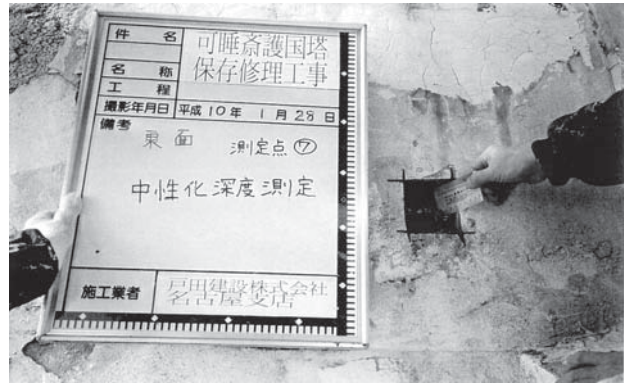 件名
可睡斎護国塔
保存修理工事
名称
工程
撮影年月日 平成10年 1月28日
備考
東面 測定点⑦
中性化深度測定
施工業者
戸田建設株式会社
名古屋支店